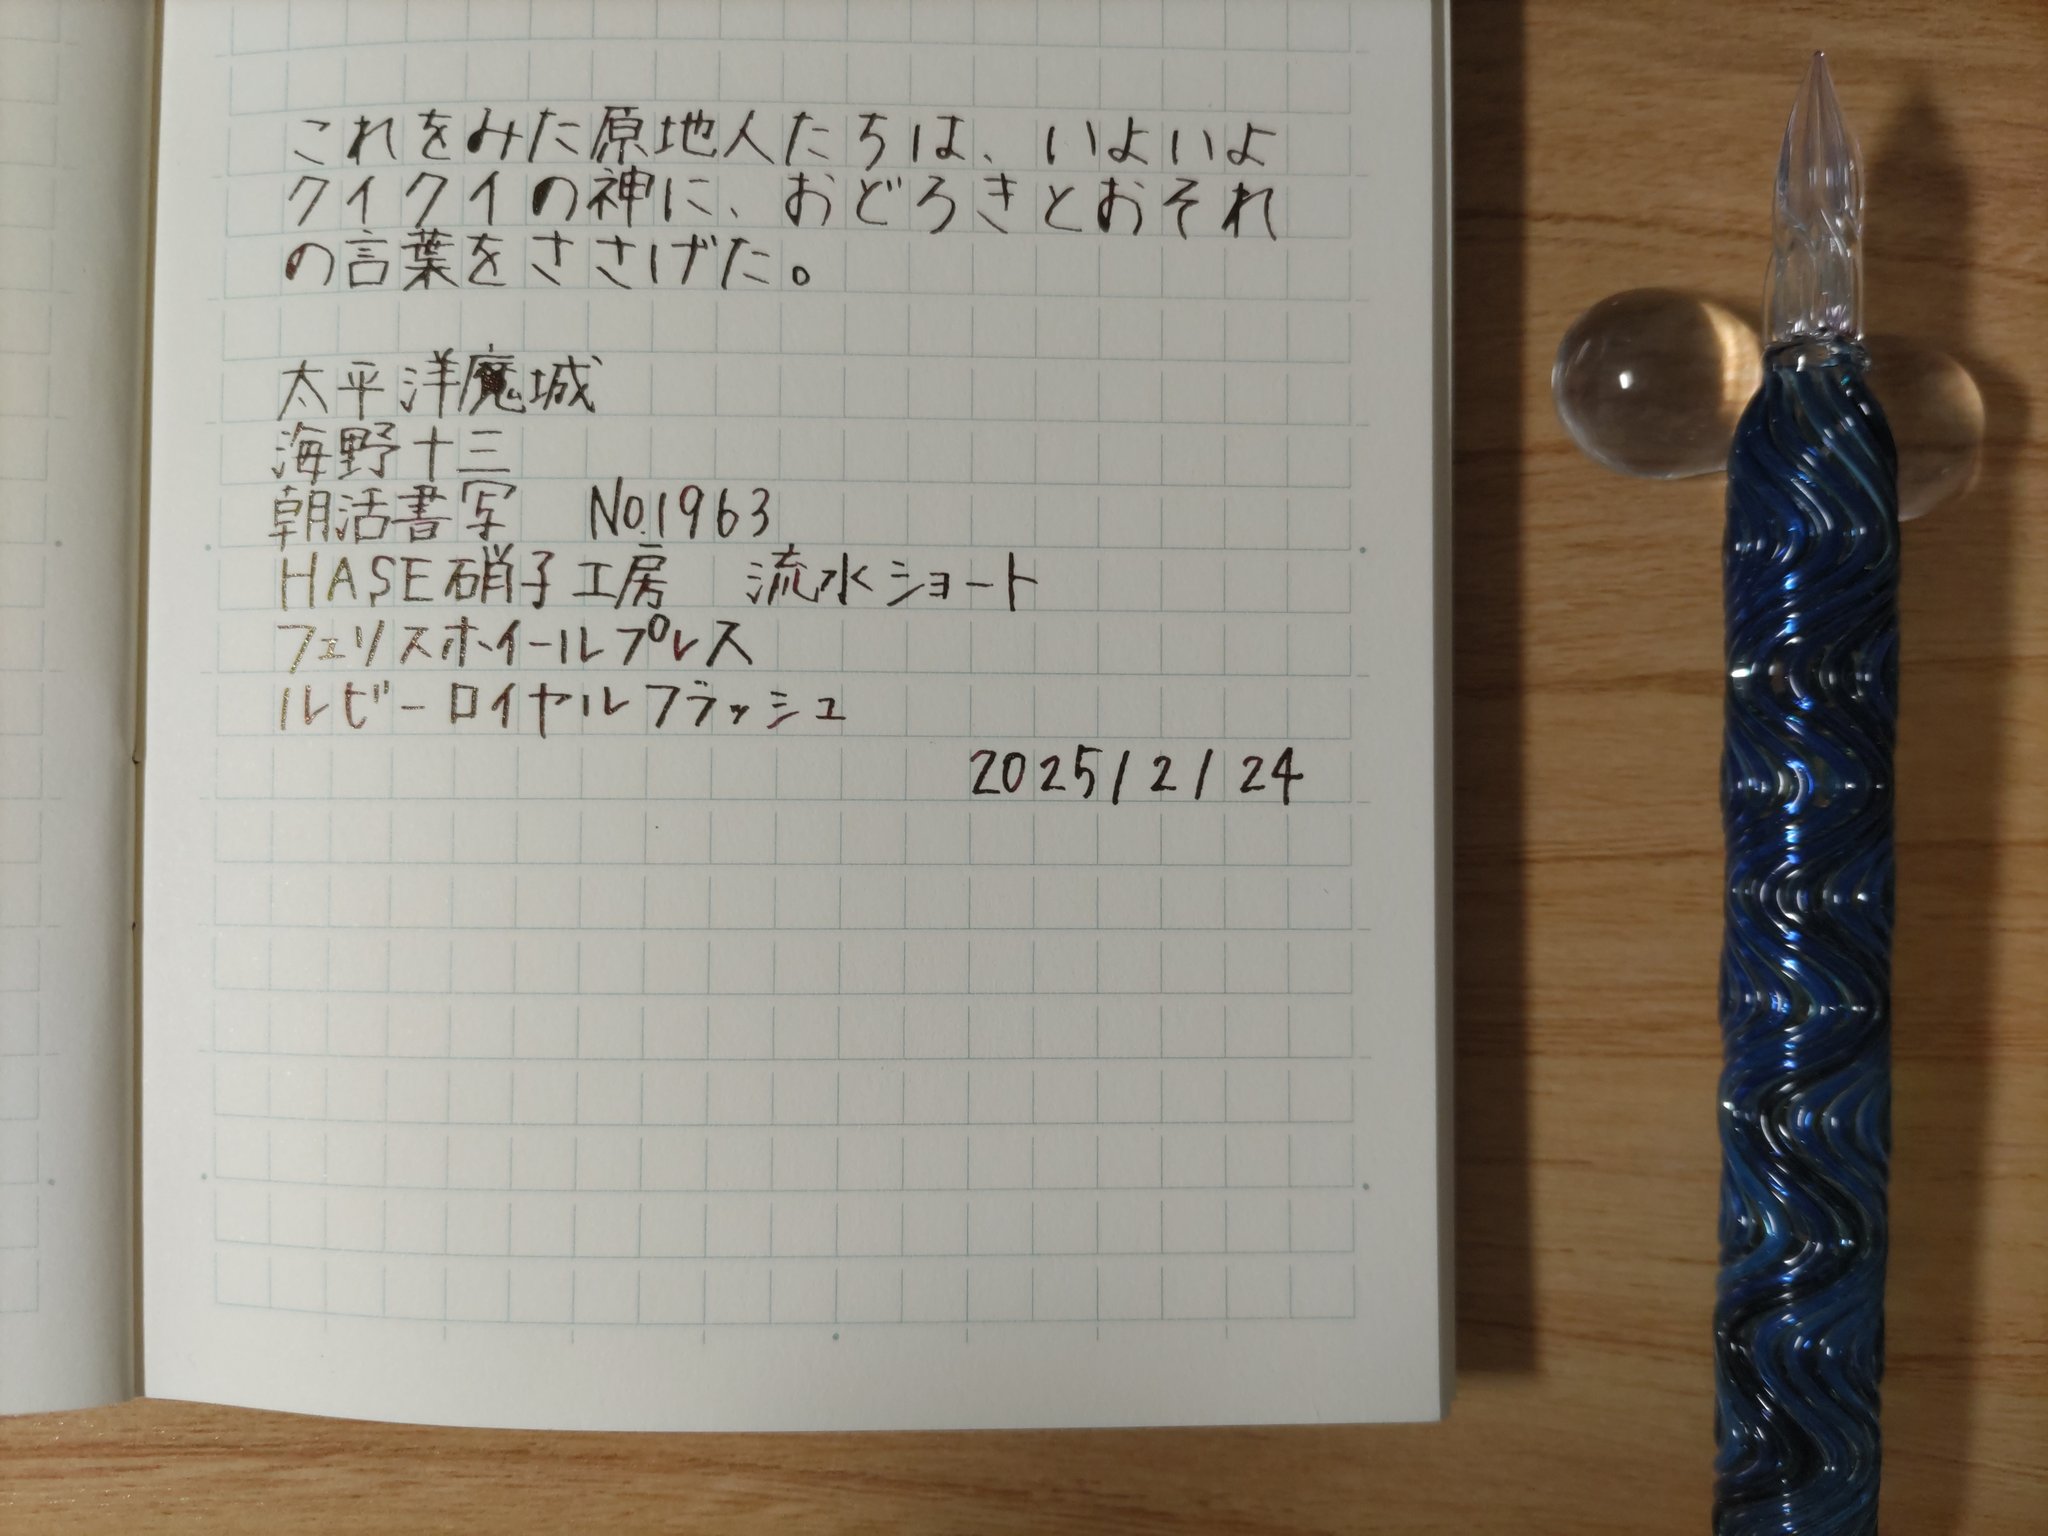 これをみた原地人たちは、いよいよ
クイクイの神に、おどろきとおそれ
の言葉をささげた。
太平洋魔城
海野十三
朝活書写　No.1963
HASE硝子工房　流水ショート
フェリスホイールプレス
ルビーロイヤルフラッシュ
2025/2/24